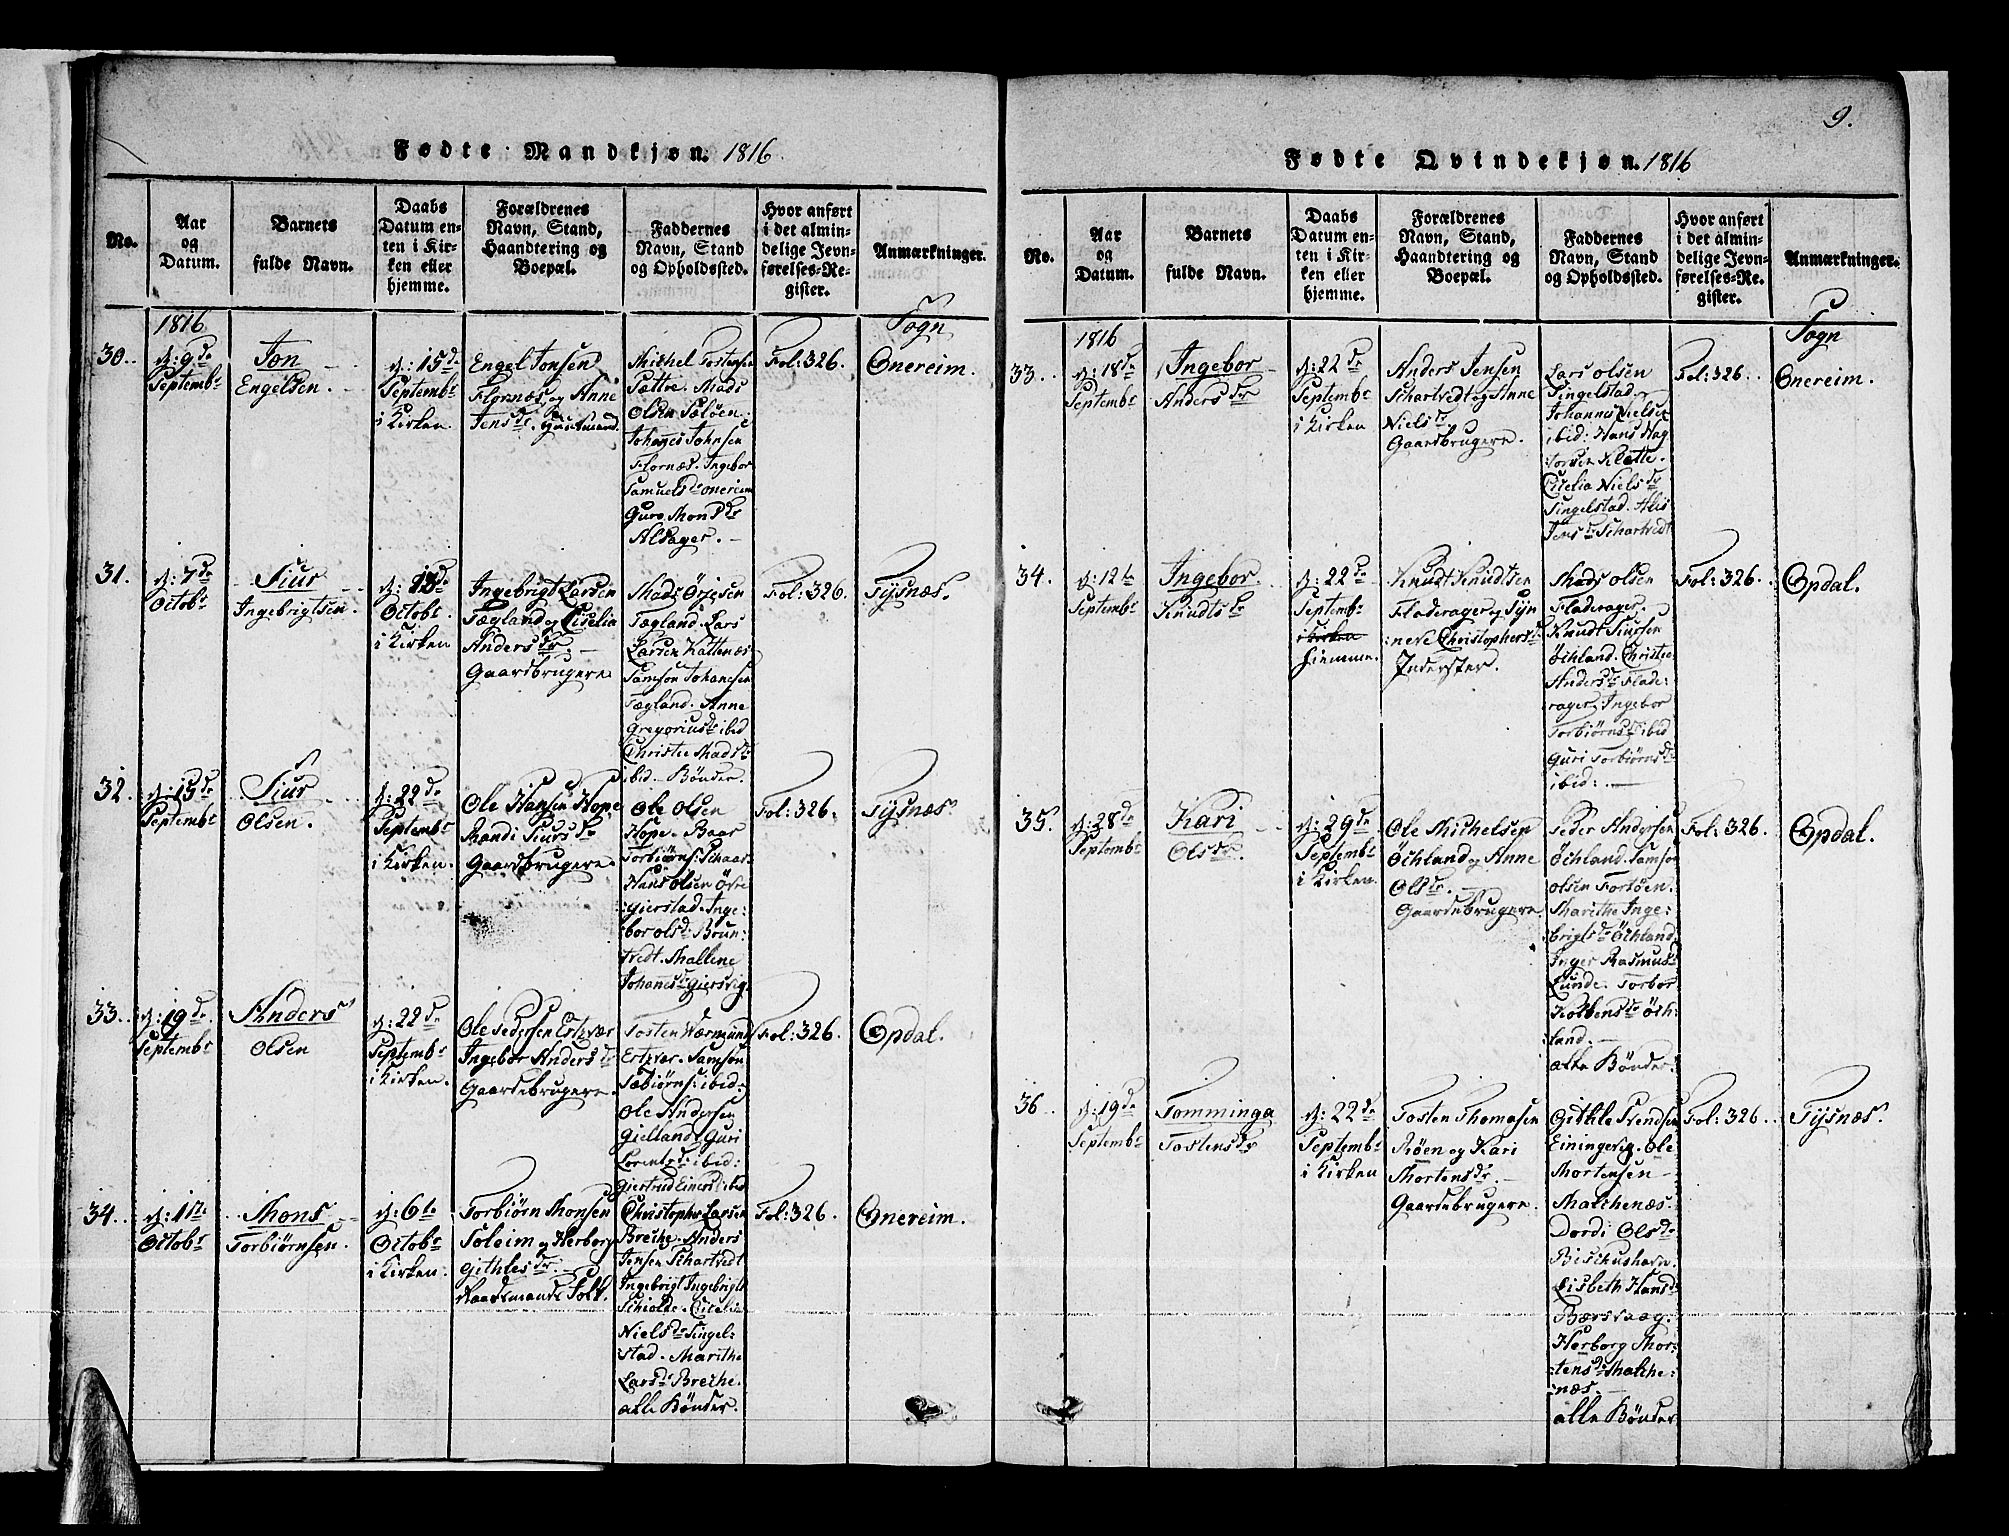 9.
Fødte Mandkjøn. 1816.
No.
Aar og Datum.
Barnets fulde Navn.
Daabs Datum enten i Kirken eller hjemme.
Forældrenes Navn, Stand, Haandtering og Boepæl.
Faddernes Navn, Stand og Opholdssted.
Hvor anført i det almindelige Jevnførelses-Register.
Anmærkninger.
1816
Sogn
30.
d: 9de
Septembr
Jon
Engelsen.
d: 15de
Septembr
i Kirken
Engel Jonsen
Flornæs og Anne
Jensdr.
Michel Tostensen
Sattre. Mads
Olsen Sæløen
Johanes Johnsen
Flornæs. Ingebor
Samuelsdr Onereim
Guro Monsdr
Alsager.
Fol: 326.
Onereim.
31.
d: 7de
Octobr
Siur
Ingebrigtsen.
Octobr
i Kirken
Ingebrigt Larsen
Tægland og Cicelia
Andersdr.
Gaardbrugere
Mads
Tægland. Lars
Larsen Kattenæs
Samson Johanesen
Tægland. Anne
Gregoriusdr ibid
Christie Madsdr
ibid. Bønder.
Fol: 326.
Tysnæs.
32.
d: 15de
Septembr
Siur
Olsen.
d: 22de
Septembr
i Kirken.
Ole Hansen Hope
Randi Siursdr
Gaardbrugere.
Ole Olsen
Hope. Baar
Torbiørns:
Hans Olsen Øvre
Gierstad. Inge:
bor Olsd: Brun:
tvedt. Mallene
Johanesdr Giersvig.
Fol: 326.
Tysnæs
33.
d: 19de
Septembr
Anders
Olsen
d: 22de
Septembr
i Kirken.
Ole Pedersen Ertzvær
Ingebor Andersdr
Gaardebrugere.
Tosten
Ertzvær. Samson
Sæbiørns: ibid:
Ole Andersen
Gielland. Guri
ibid:
Giertrud Einersd: ibid
Fol: 326.
Opdal.
34.
d: 1ste
Octobr
Mons
Torbiørnsen.
d: 6te
Octobr
i Kirken.
Torbiørn Monsen
Soleim og Herborg
Githlesdr.
Folk.
Christopher Larsen
Breche. Anders
Jensen Schartvedt
Ingebrigt Ingebrigts
Schiolde. Cicelia
Nielsdr Singel:
stad. Marithe
Larsdr Breche.
alle Bønder.
Fol: 326.
Onereim.
Fødte Qvindekjøn. 1816
No.
Aar og Datum.
Barnets fulde Navn.
Daabs Datum enten i Kirken eller hjemme.
Forældrenes Navn, Stand, Haandtering og Boepæl.
Faddernes Navn, Stand og Opholdssted.
Hvor anført i det almindelige Jevnførelses-Register.
Anmærkninger.
1816
Sogn
33.
d: 18de
Septembr
Ingebor
Andersdr
d: 22de
Septembr
i Kirken
Anders Jensen
Schartvedt og Anne
Nielsdr
Gaardbrugere.
Lars Olsen
Singelstad.
Johannes Nielsen
ibid: Hans Hag
Cicelia Nielsdr
Singelstad. Alis
Jensdr Schartvedt
Fol: 326.
Onereim.
34.
d: 12te
Septembr
Ingebor.
Knudtsdr
d: 22de
Septembr
i Kirken
hiemme.
Knudt Knudtsen
Fladerager og Syn
:neve Christophersdr
Inderster.
Mads Olsen
Fladerager.
Knudt Siursen
Øchland. Christie
Andersdr Flade:
rager, Ingebor
Torbiørnsdr ibid
Guri Torbiørnsdr
ibid:
Fol: 326.
Opdal.
35.
d: 28de
Septembr
Kari
Olsdr.
d: 29de
Septembr
i Kirken.
Ole Michelsen
Øchland og Anne
Olsdr.
Gaardebrugere
Peder Andersen
Øchland. Samson
Olsen Fortøen.
Marithe Inge:
brigtsdr Øchland.
Inger Rasmusd
Lunde. Torbor
Kolbensdr Øch:
land.
alle Bønder.
Fol: 326.
Opdal.
36.
d: 19de
Septembr
Tomminga
Tostensdr
d: 22de
Septembr
i Kirken
Tosten Thomasen
Røen og Kari
Mortensdr.
Gaardebrugere.
Githle Svendsen
Einingevig. Ole
Mortensen
Malchenæs.
Dordi Olsdr
Bischushavn.
Lisbeth Hansdr
Bærsvaag.
Herborg Mor:
tensdr Malche:
næs.
alle Bønder
Fol: 326.
Tysnæs.